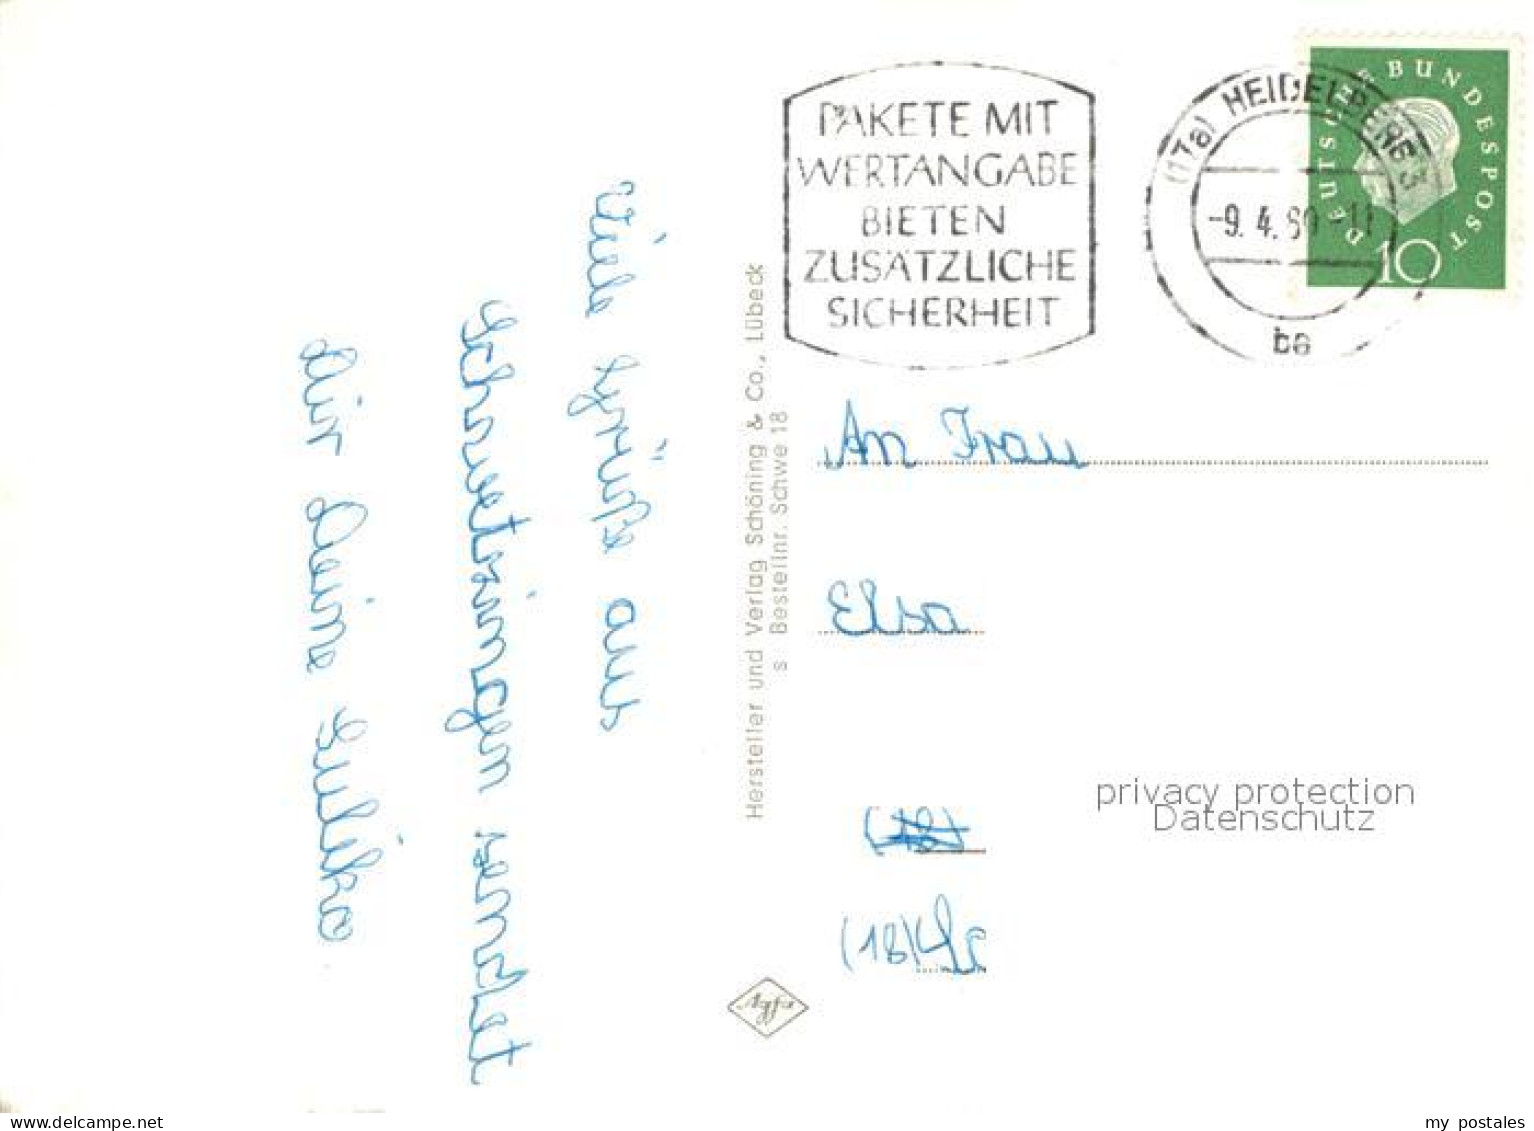 Viele Grüße aus
Schwetzingen sendet
dir Deine Suliko
Hersteller und Verlag Schöning & Co., Lübeck
s Bestellnr. Schwe 18
Agfa
PAKETE MIT
WERTANGABE
BIETEN
ZUSÄTZLICHE
SICHERHEIT
(17a) HEIDELBERG
-9. 4. 60
ba
DEUTSCHE BUNDESPOST
10
An Frau
Elsa
privacy protection
Datenschutz
(18)
www.delcampe.net
my_postales